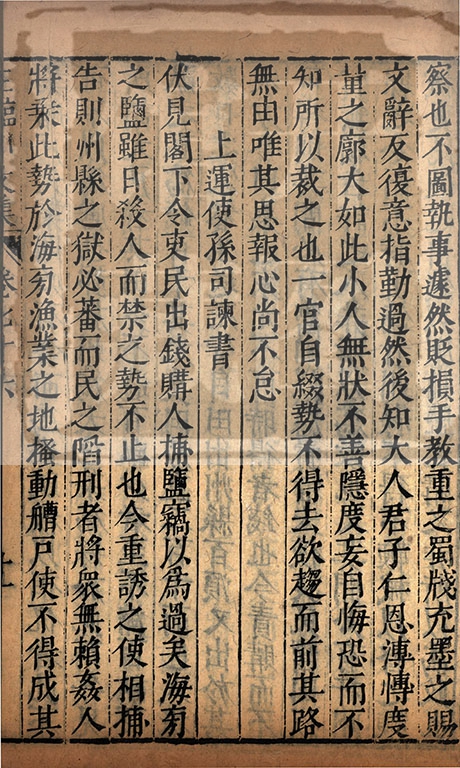 察也不圖執事遽然貶損手教重之蜀牋充墨之賜
文辭反復意指勤過然後知大人君子仁恩溥慱度
量之廓大如此小人無狀不善隱度妄自悔恐而不
知所以裁之也一官自綴勢不得去欲趨而前其路
無由唯其思報心尚不怠
上運使孫司諫書
伏見閣下令吏民出錢購人捕鹽竊以爲過矣海旁
之鹽雖日殺人而禁之勢不止也今重誘之使相捕
告則州縣之獄必蕃而民之陷刑者將衆無賴姦人
將乗此勢於海旁漁業之地搔動艚戸使不得成其
王臨川文集 卷七十六